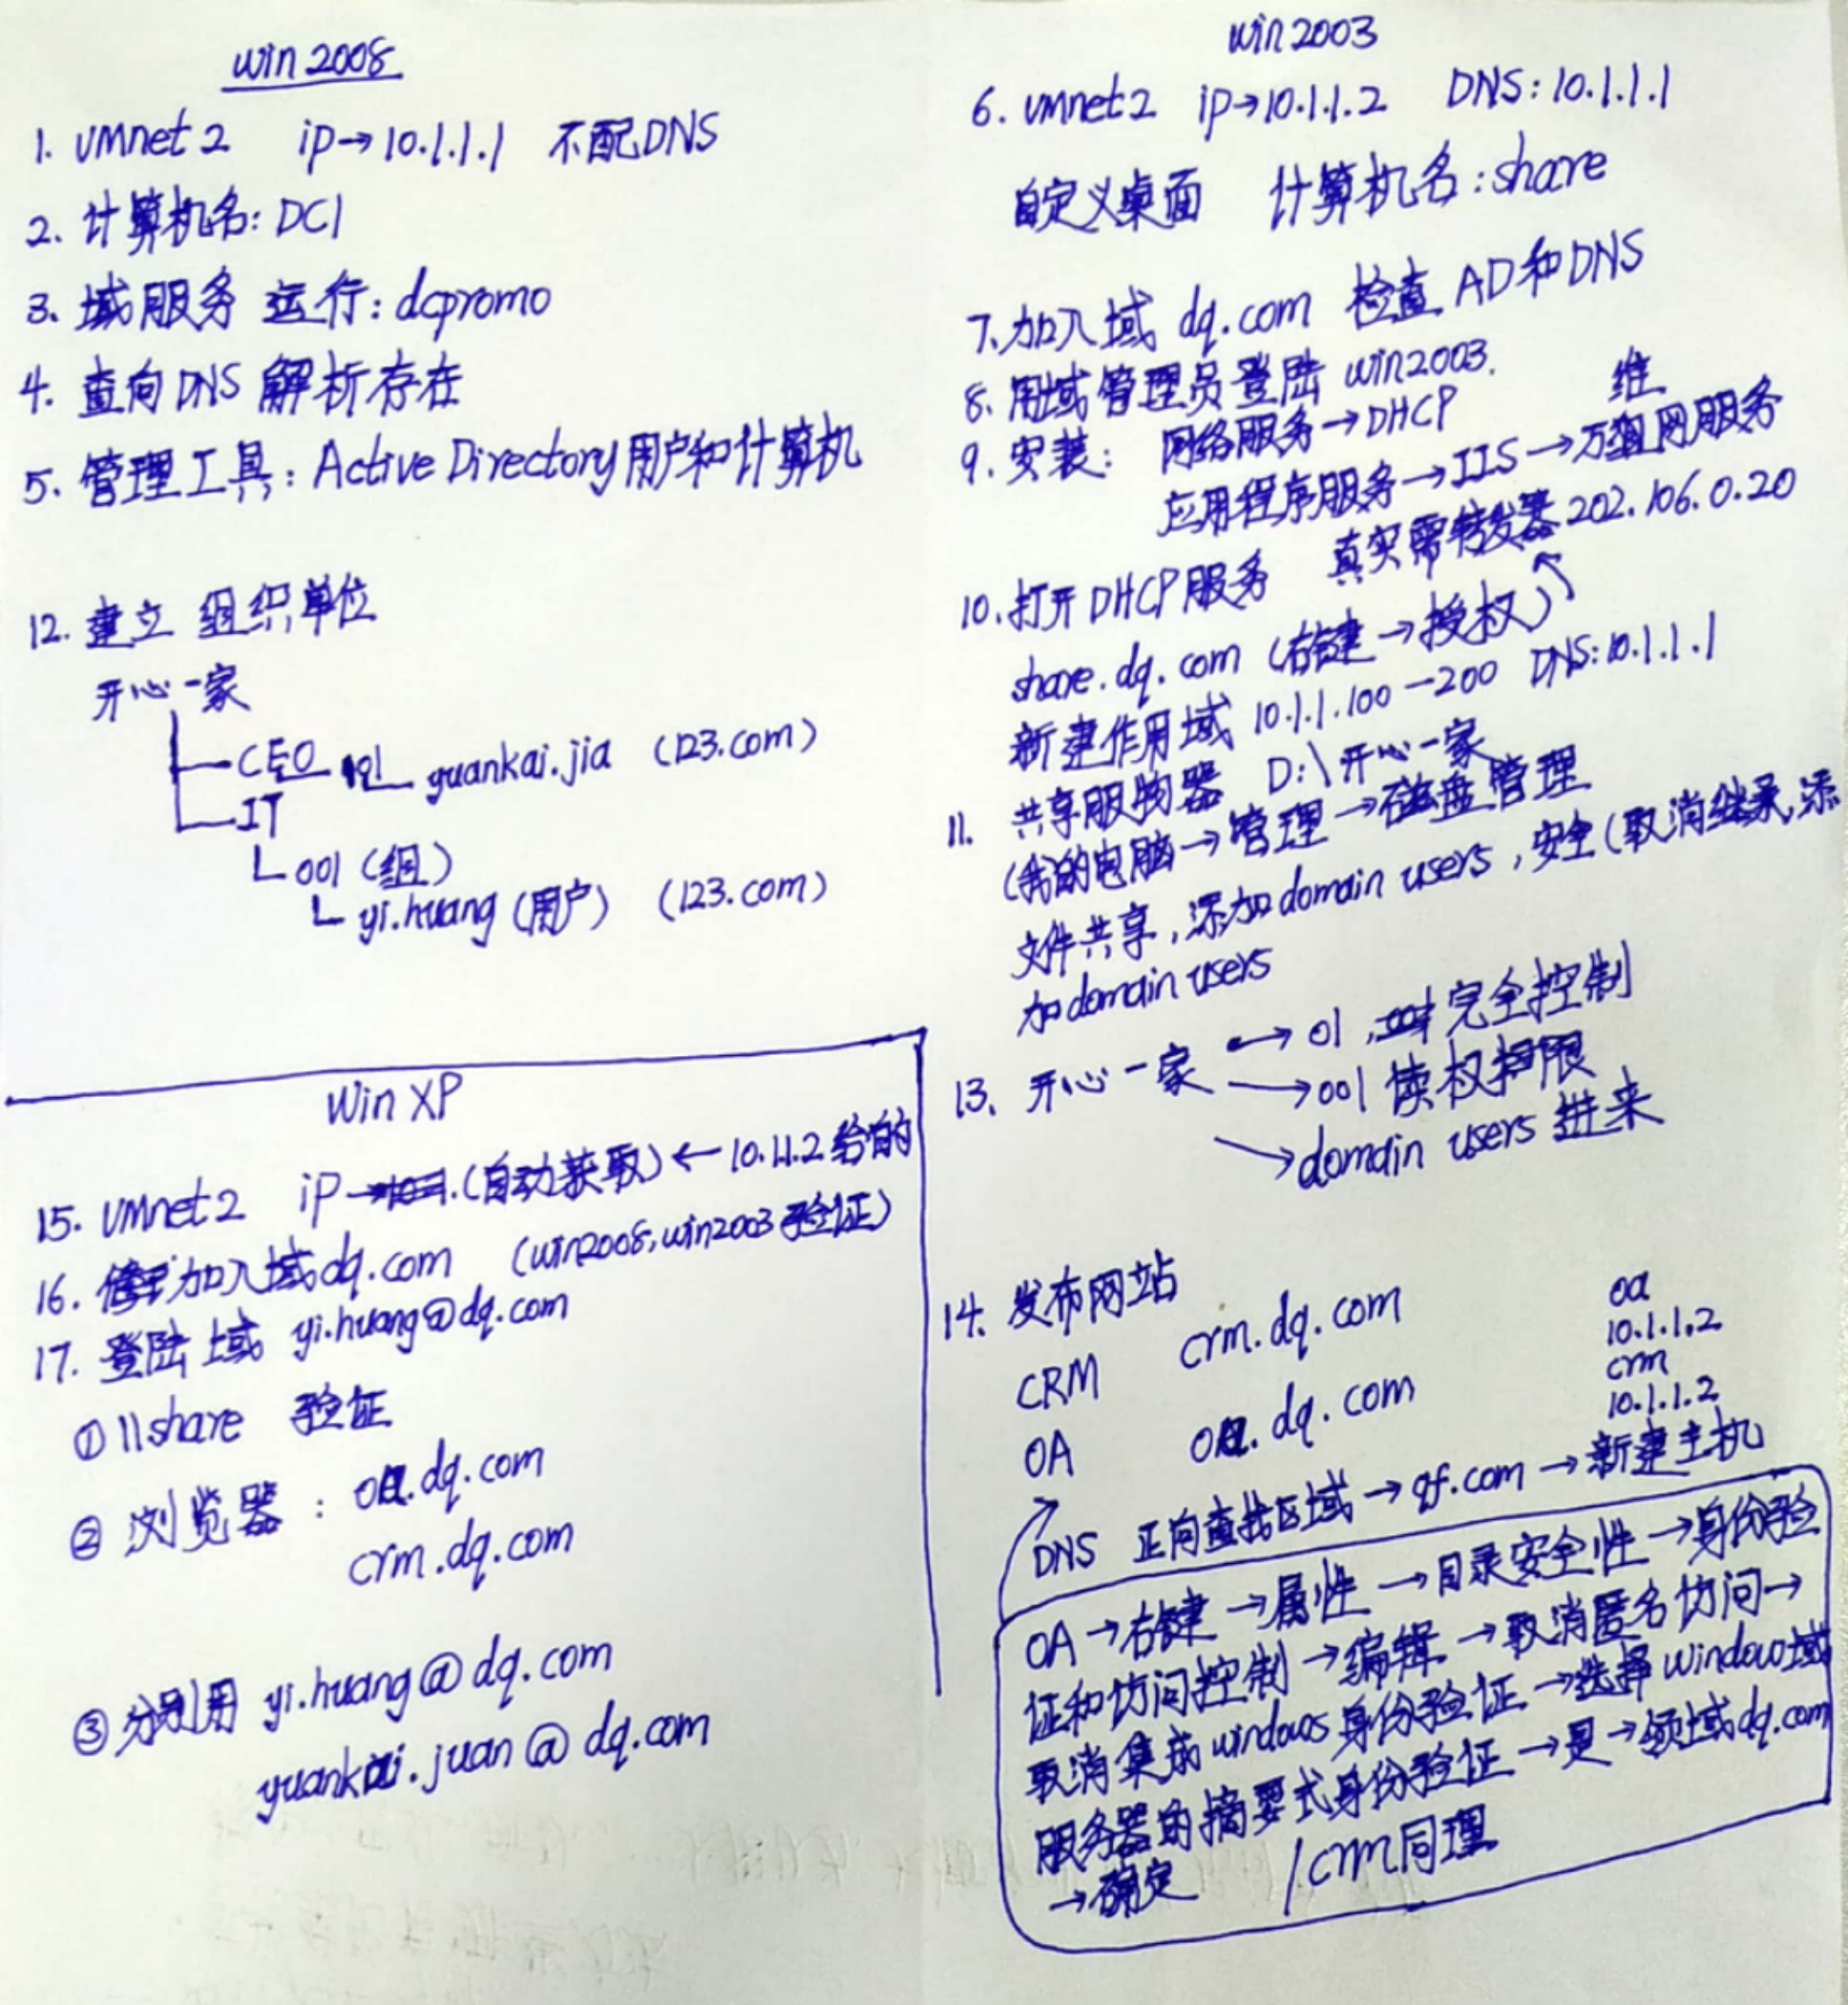 win 2008
1. vmnet 2 ip→10.1.1.1 不配DNS
2. 计算机名: DC1
3. 域服务 运行: dcpromo
4. 查向 DNS 解析存在
5. 管理工具: Active Directory 用户和计算机
12. 建立 组织单位
开心一家
CEO 01 yuankai.jia (123.com)
IT
001 (组)
yi.huang (用户) (123.com)
Win XP
15. vmnet2 ip (自动获取) ← 10.1.1.2 给的
16. 加入域 dq.com (win2008, win2003 验证)
17. 登陆域 yi.huang@dq.com
① \\share 验证
② 浏览器: oa.dq.com
crm.dq.com
③ 分别用 yi.huang@dq.com
yuankai.juan@dq.com
win 2003
6. vmnet2 ip→10.1.1.2 DNS: 10.1.1.1
自定义桌面 计算机名: share
7. 加入域 dq.com 检查 AD和DNS
8. 用域管理员登陆 win2003.
9. 安装: 网络服务→DHCP
应用程序服务→IIS→万维网服务
10. 打开DHCP服务 真实需转发器 202.106.0.20
share.dq.com (右键→授权)
新建作用域 10.1.1.100-200 DNS: 10.1.1.1
11. 共享服务器 D:\开心一家
(我的电脑→管理→磁盘管理
文件共享, 添加 domain users, 安全 (取消继承, 添
加 domain users
13. 开心一家 → 01, 完全控制
→ 001 读权限
→ domain users 进来
14. 发布网站
CRM crm.dq.com
OA oa.dq.com
oa
10.1.1.2
crm
10.1.1.2
DNS 正向查找区域 → qf.com → 新建主机
OA→右键→属性→目录安全性→身份验
证和访问控制→编辑→取消匿名访问→
取消集成windows身份验证→选择window域
服务器的摘要式身份验证→是→领域dq.com
→确定 /crm同理